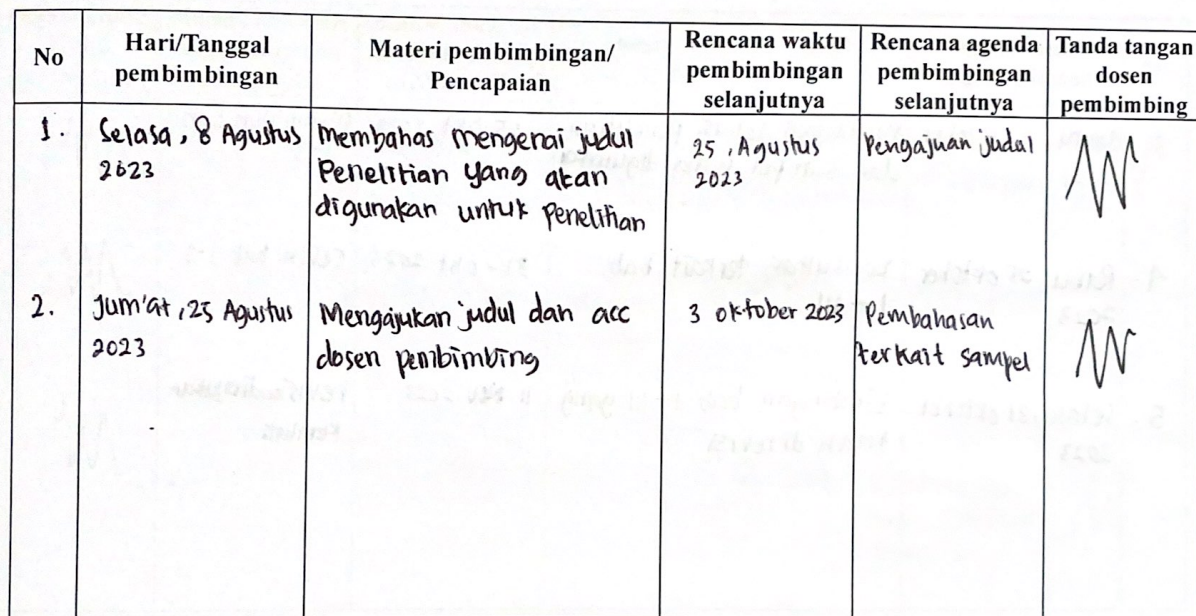 No
Hari/Tanggal
pembimbingan
Materi pembimbingan/
Pencapaian
Rencana waktu
pembimbingan
selanjutnya
Rencana agenda
pembimbingan
selanjutnya
Tanda tangan
dosen
pembimbing
1.
Selasa, 8 Agustus
2023
Membahas mengenai judul
Penelitian yang akan
digunakan untuk Penelitian
25, Agustus
2023
Pengajuan judul
2.
Jum'at, 25 Agustus
2023
Mengajukan judul dan acc
dosen pembimbing
3 oktober 2023
Pembahasan
terkait sampel